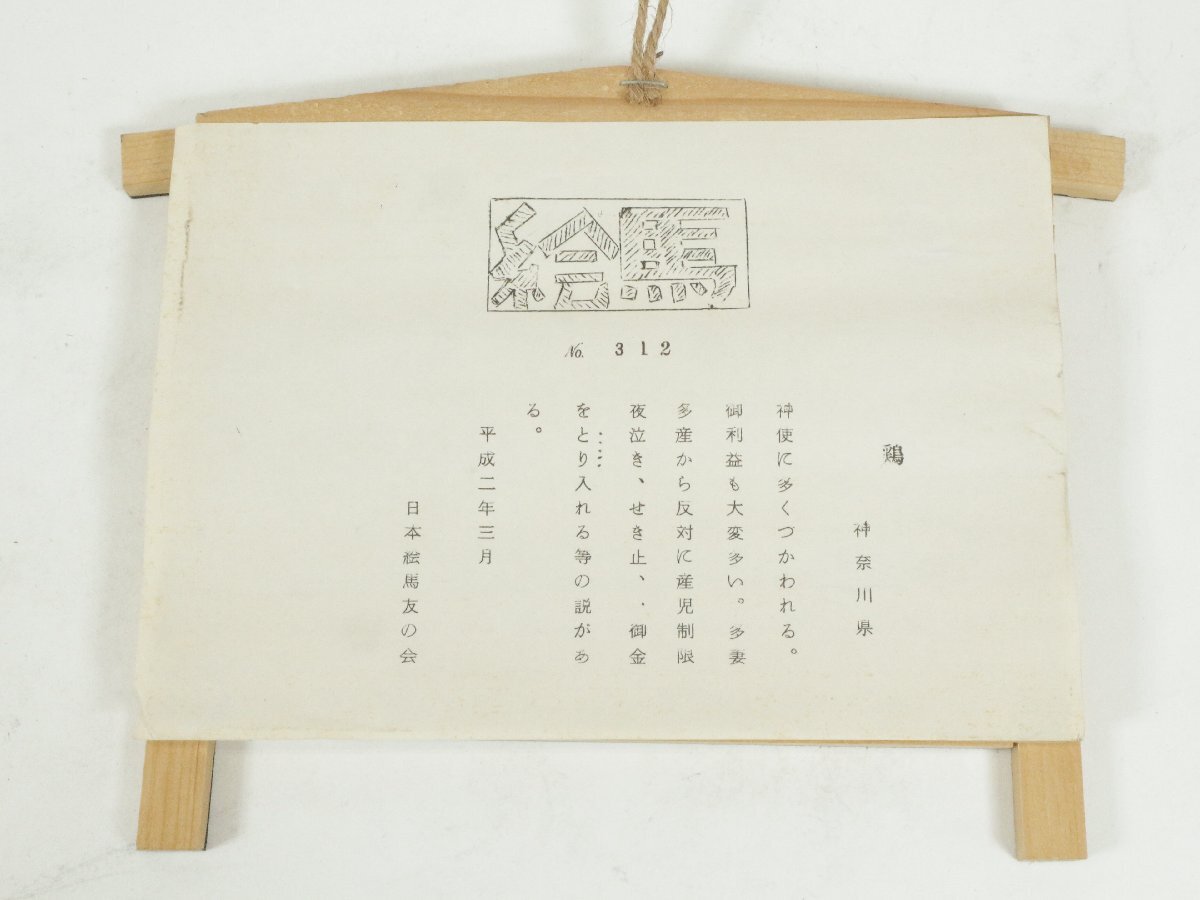 絵馬
No. 312
鶏
神奈川県
神使に多くづかわれる。
御利益も大変多い。多妻
多産から反対に産児制限
夜泣き、せき止、、御金
をとり入れる等の説があ
る。
平成二年三月
日本絵馬友の会